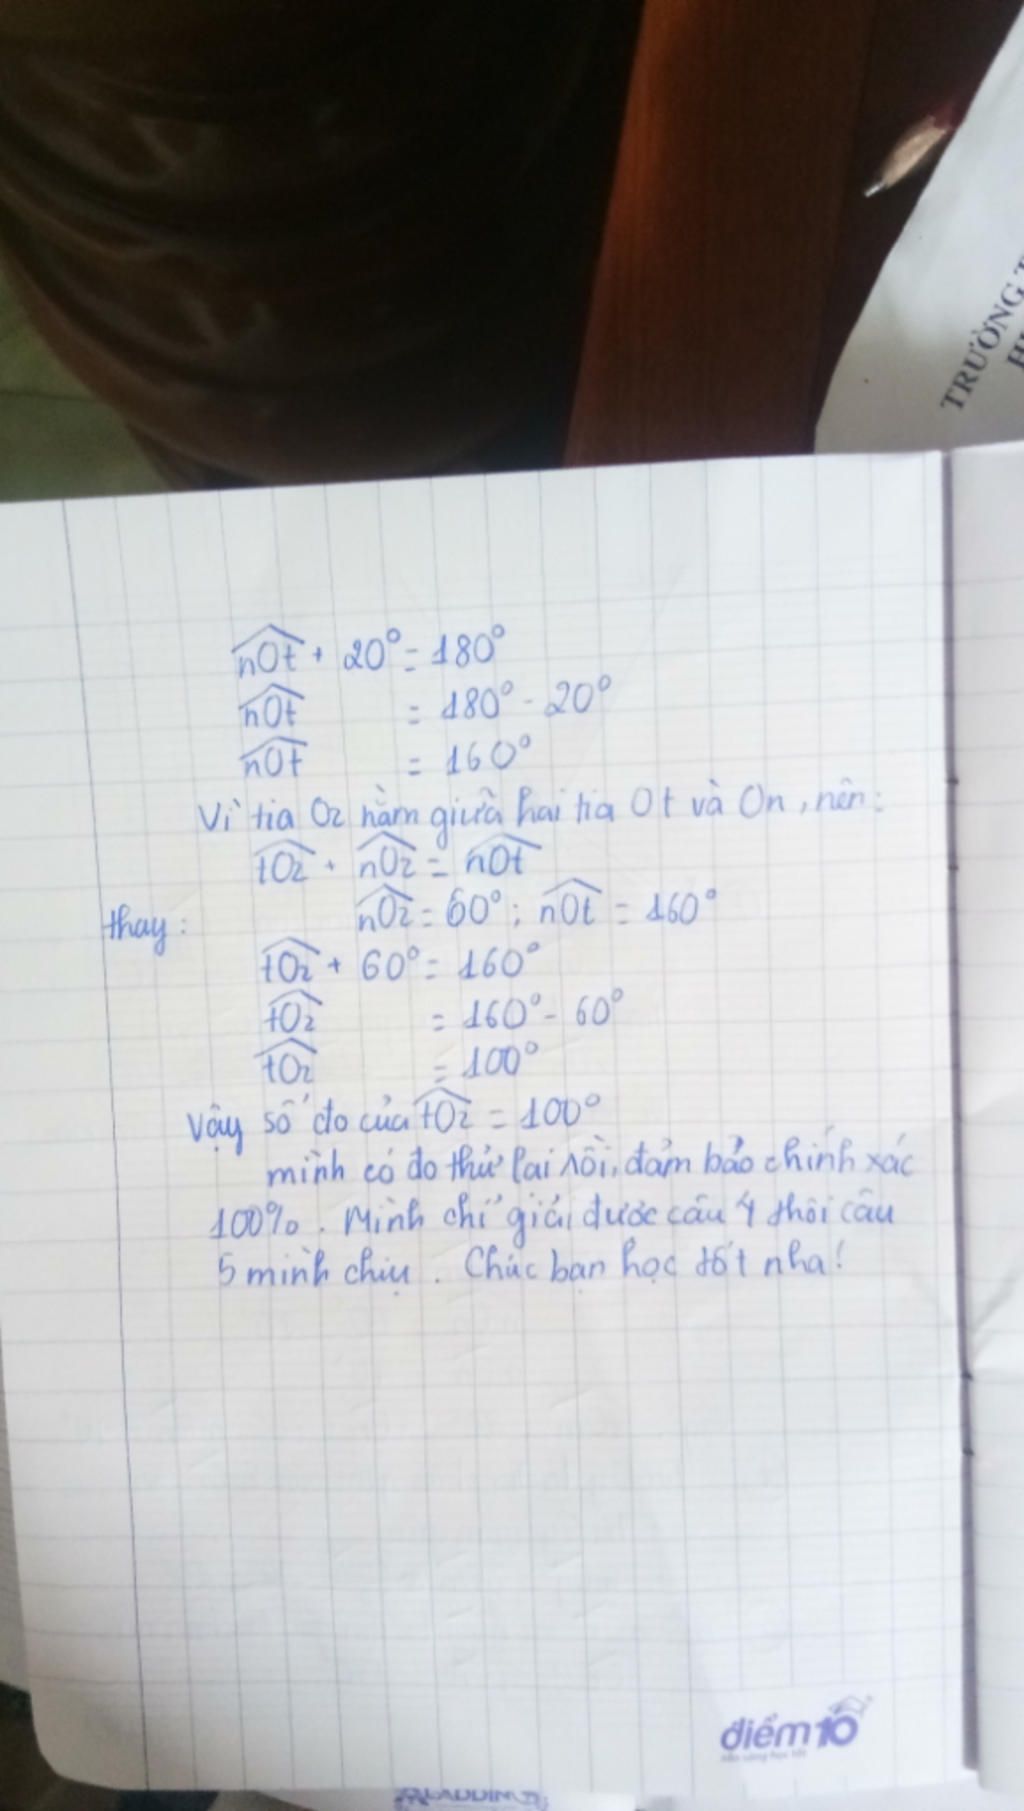 TRƯỜNG T
nOt + 20° = 180°
nOt = 180° - 20°
nOt = 160°
Vì tia Oz nằm giữa hai tia Ot và On, nên:
tOz + nOz = nOt
thay: nOz = 60°; nOt = 160°
tOz + 60° = 160°
tOz = 160° - 60°
tOz = 100°
Vậy số đo của tOz = 100°
mình có đo thử lại rồi, đảm bảo chính xác
100%. Mình chỉ giải được câu 4 thôi câu
5 mình chịu. Chúc bạn học tốt nha!
điểm 10